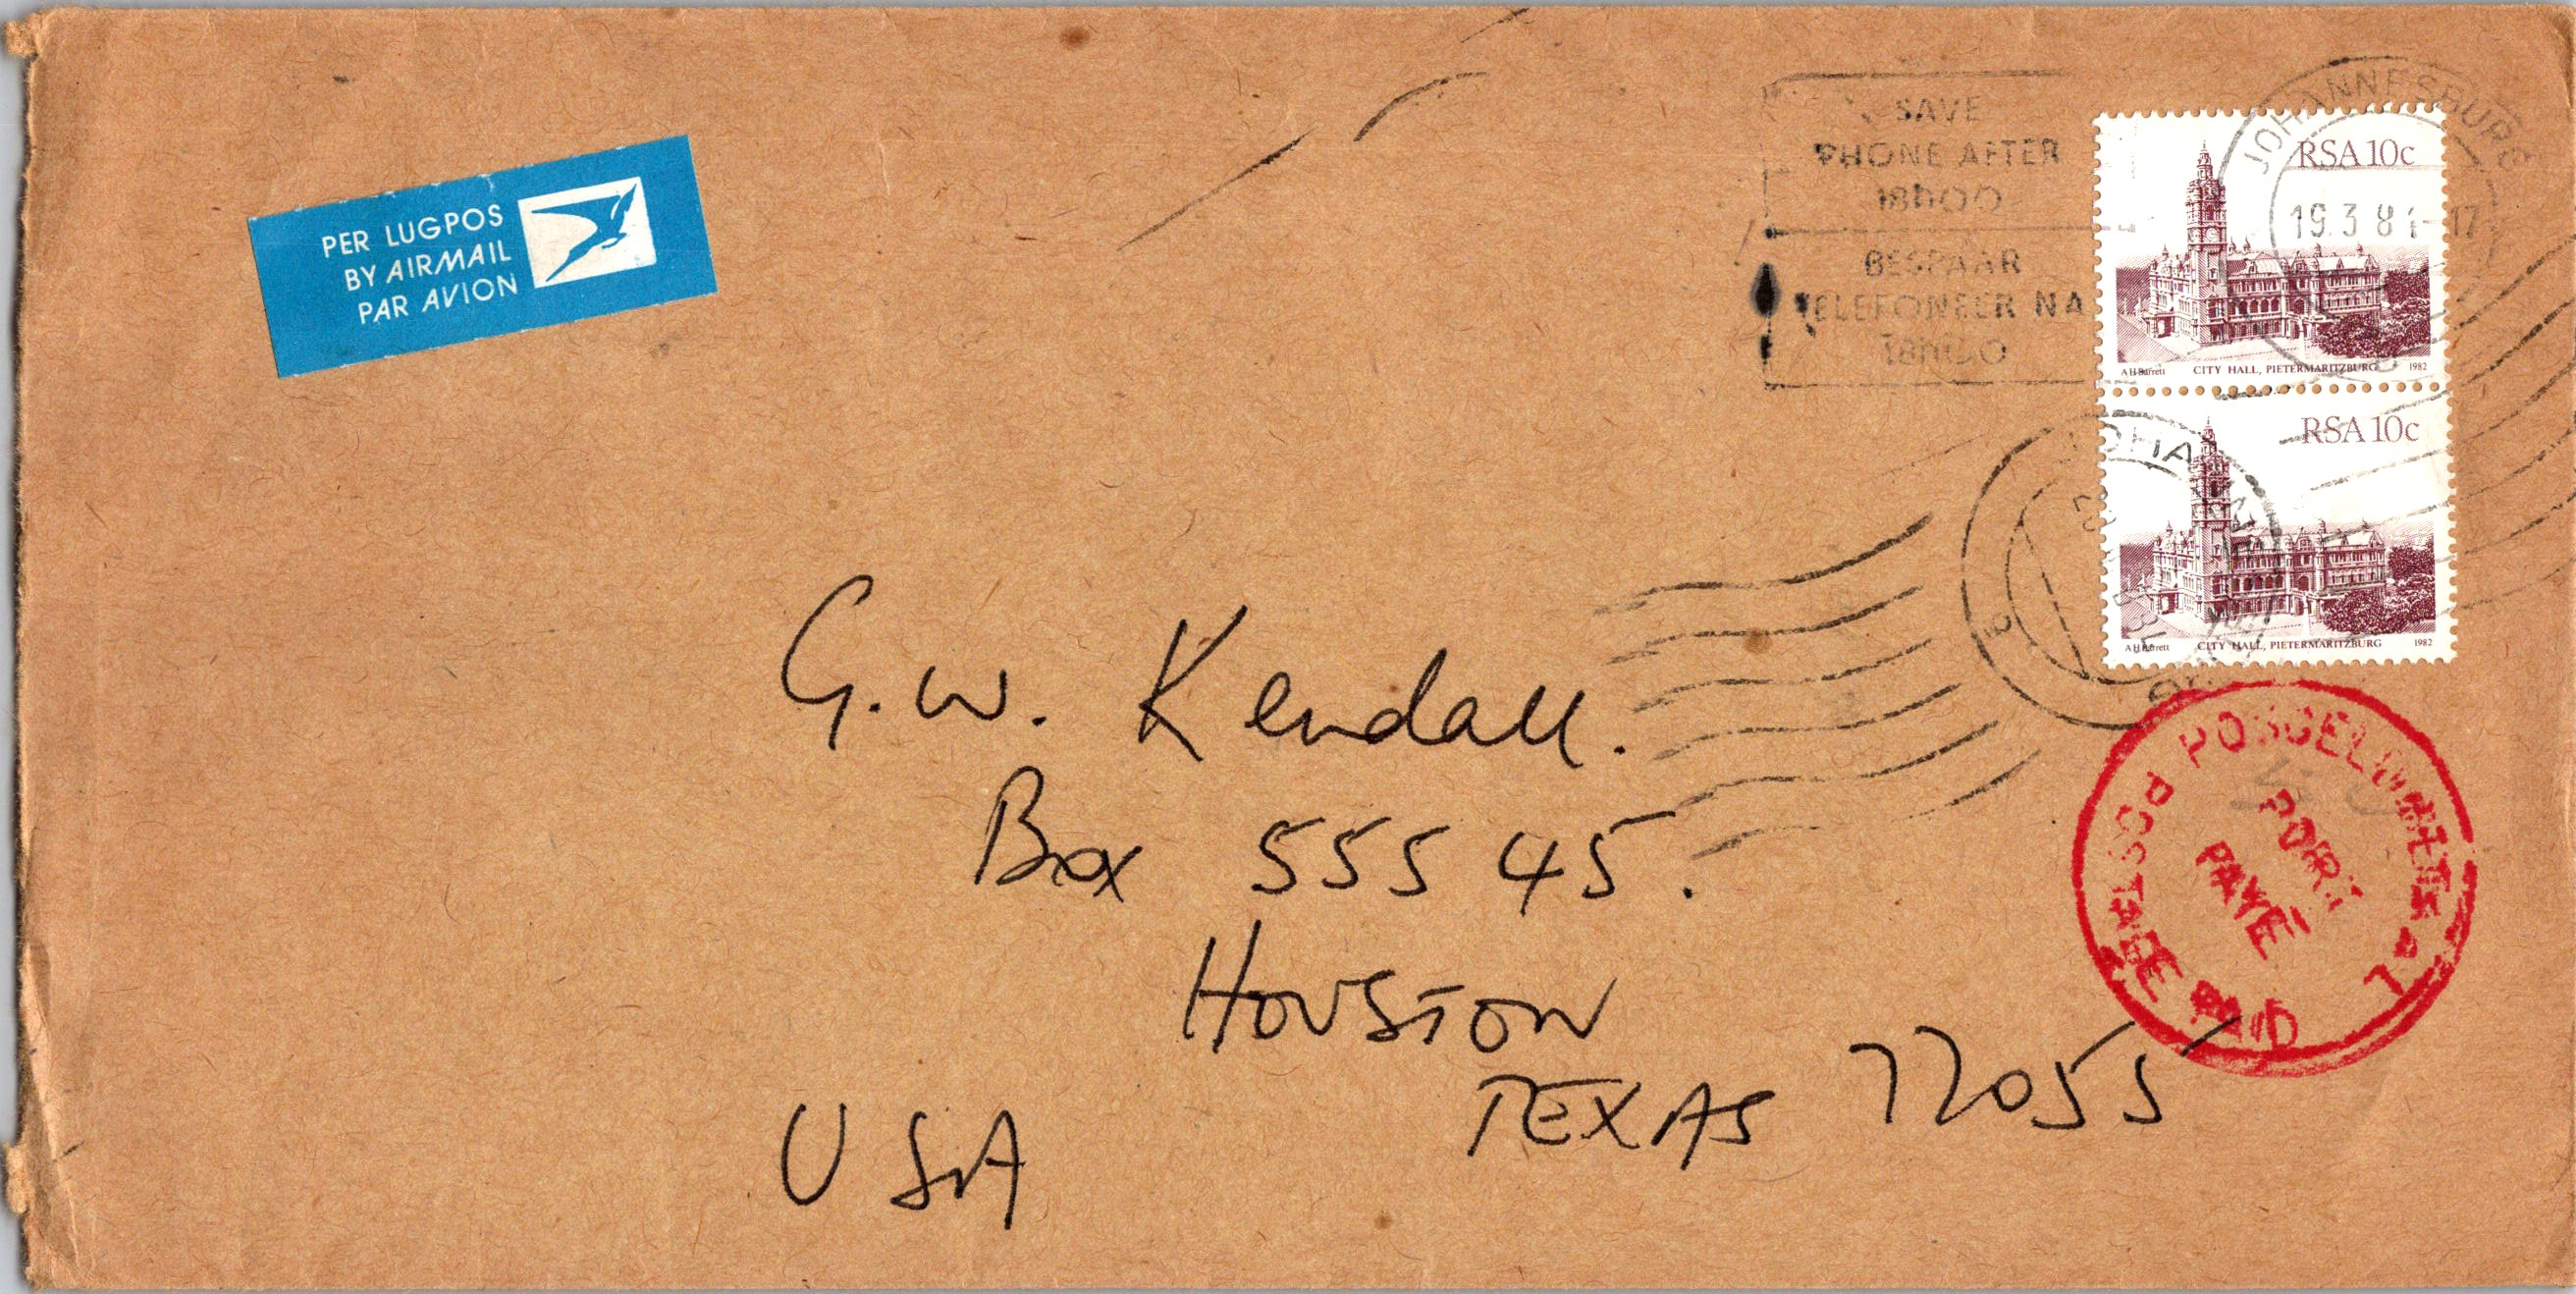 PER LUGPOS
BY AIRMAIL
PAR AVION
SAVE
PHONE AFTER
18h00
BESPAAR
TELEFONEER NA
18h00
JOHANNESBURG
RSA 10c
A H Barrett CITY HALL, PIETERMARITZBURG 1982
RSA 10c
A H Barrett CITY HALL, PIETERMARITZBURG 1982
G.W. Kendall.
Box 55545.
HOUSTON
TEXAS 77055
USA
POSTAGE PAID
PORT
PAYÉ